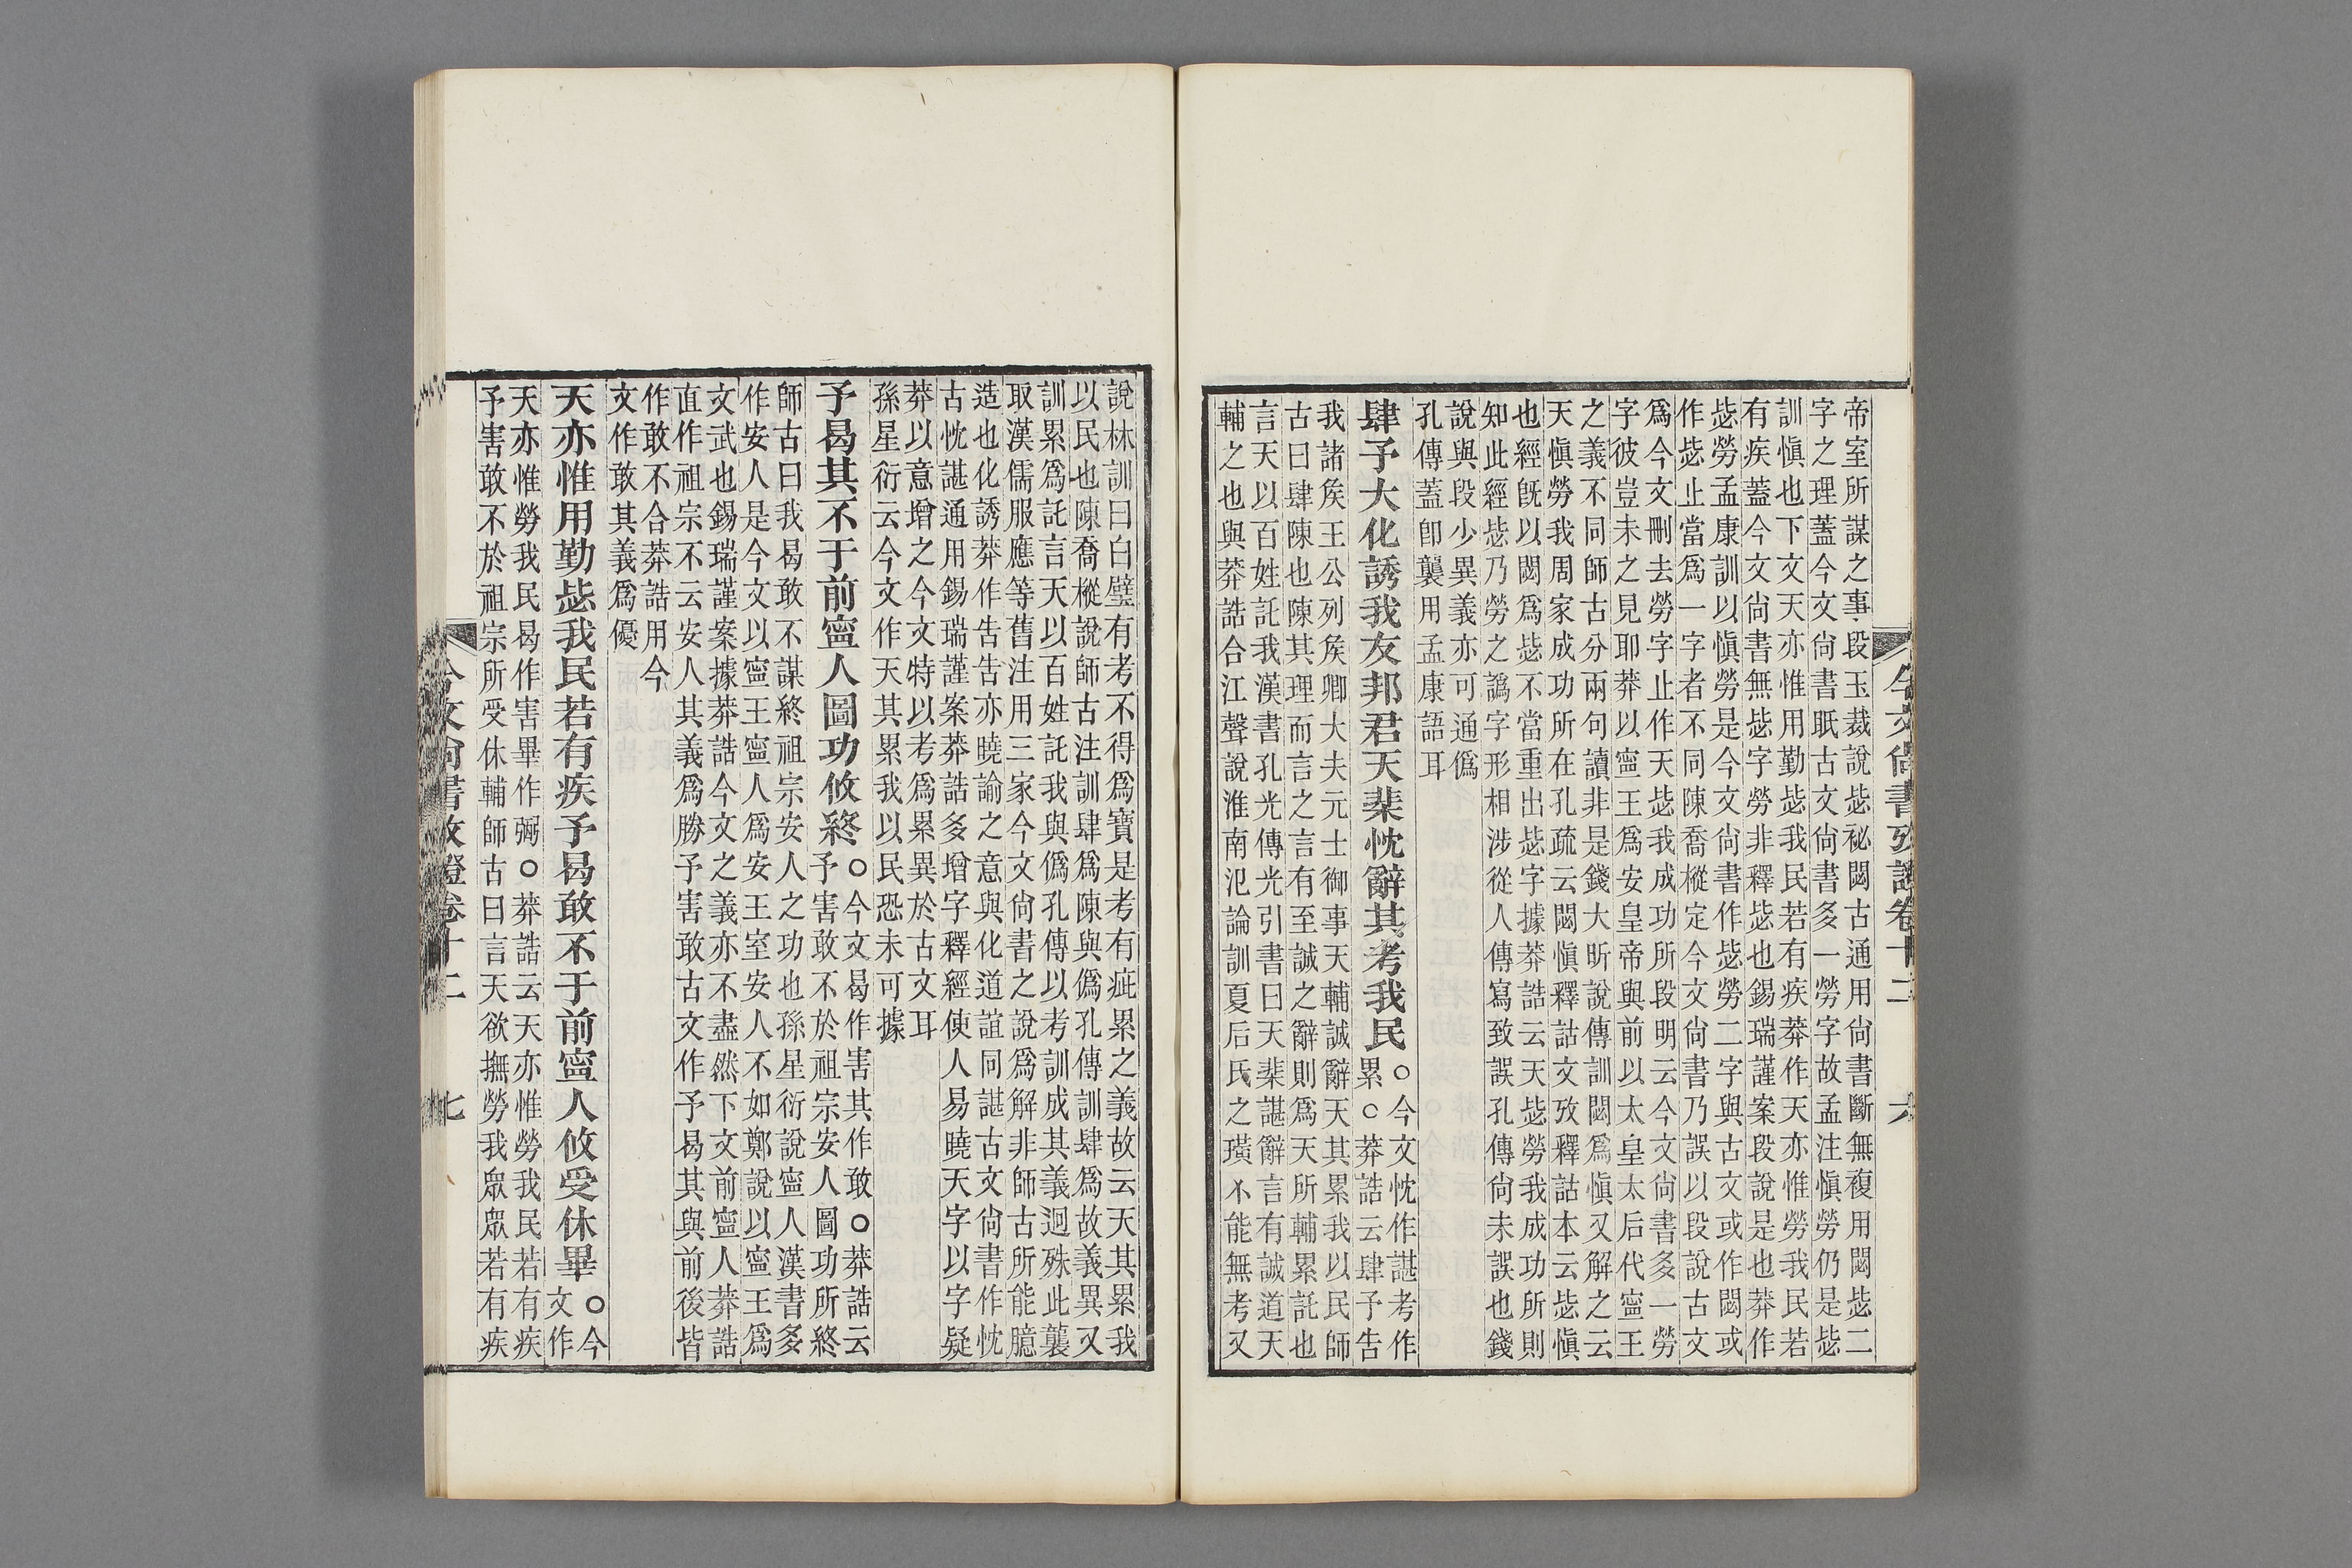 今文尚書攷證卷十二
六
帝室所謀之事段玉裁說毖祕閟古通用尚書斷無複用閟毖二
字之理蓋今文尚書眡古文尚書多一勞字故孟注愼勞仍是毖
訓愼也下文天亦惟用勤毖我民若有疾莽作天亦惟勞我民若
有疾蓋今文尚書無毖字勞非釋毖也錫瑞謹案段說是也莽作
毖勞孟康訓以愼勞是今文尚書作毖勞二字與古文或作閟或
作毖止當爲一字者不同陳喬樅定今文尚書乃誤以段說古文
爲今文刪去勞字止作天毖我成功所段明云今文尚書多一勞
字彼豈未之見耶莽以寧王爲安皇帝與前以太皇太后代寧王
之義不同師古分兩句讀非是錢大昕說傳訓閟爲愼又解之云
天愼勞我周家成功所在孔疏云閟愼釋詁文攷釋詁本云毖愼
也經旣以閟爲毖不當重出毖字據莽誥云天毖勞我成功所則
知此經毖乃勞之譌字形相涉從人傳寫致誤孔傳尚未誤也錢
說與段少異義亦可通僞
孔傳蓋卽襲用孟康語耳
肆予大化誘我友邦君天棐忱辭其考我民
○今文忱作諶考作
累○莽誥云肆予告
我諸侯王公列侯卿大夫元士御事天輔誠辭天其累我以民師
古曰肆陳也陳其理而言之言有至誠之辭則爲天所輔累託也
言天以百姓託我漢書孔光傳光引書曰天棐諶辭言有誠道天
輔之也與莽誥合江聲說淮南氾論訓夏后氏之璜不能無考又
說林訓曰白璧有考不得爲寶是考有疵累之義故云天其累我
以民也陳喬樅說師古注訓肆爲陳與僞孔傳訓肆爲故義異又
訓累爲託言天以百姓託我與僞孔傳以考訓成其義迥殊此襲
取漢儒服應等舊注用三家今文尚書之說爲解非師古所能臆
造也化誘莽作告告亦曉諭之意與化道誼同諶古文尚書作忱
古忱諶通用錫瑞謹案莽誥多增字釋經使人易曉天字以字疑
莽以意增之今文特以考爲累異於古文耳
孫星衍云今文作天其累我以民恐未可據
予曷其不于前寧人圖功攸終
○今文曷作害其作敢○莽誥云
予害敢不於祖宗安人圖功所終
師古曰我曷敢不謀終祖宗安人之功也孫星衍說寧人漢書多
作安人是今文以寧王寧人爲安王室安人不如鄭說以寧王爲
文武也錫瑞謹案據莽誥今文之義亦不盡然下文前寧人莽誥
直作祖宗不云安人其義爲勝予害敢古文作予曷其與前後皆
作敢不合莽誥用今
文作敢其義爲優
天亦惟用勤毖我民若有疾予曷敢不于前寧人攸受休畢
○今
文作
天亦惟勞我民曷作害畢作弼○莽誥云天亦惟勞我民若有疾
予害敢不於祖宗所受休輔師古曰言天欲撫勞我眾眾若有疾
今文尚書攷證卷十二
七